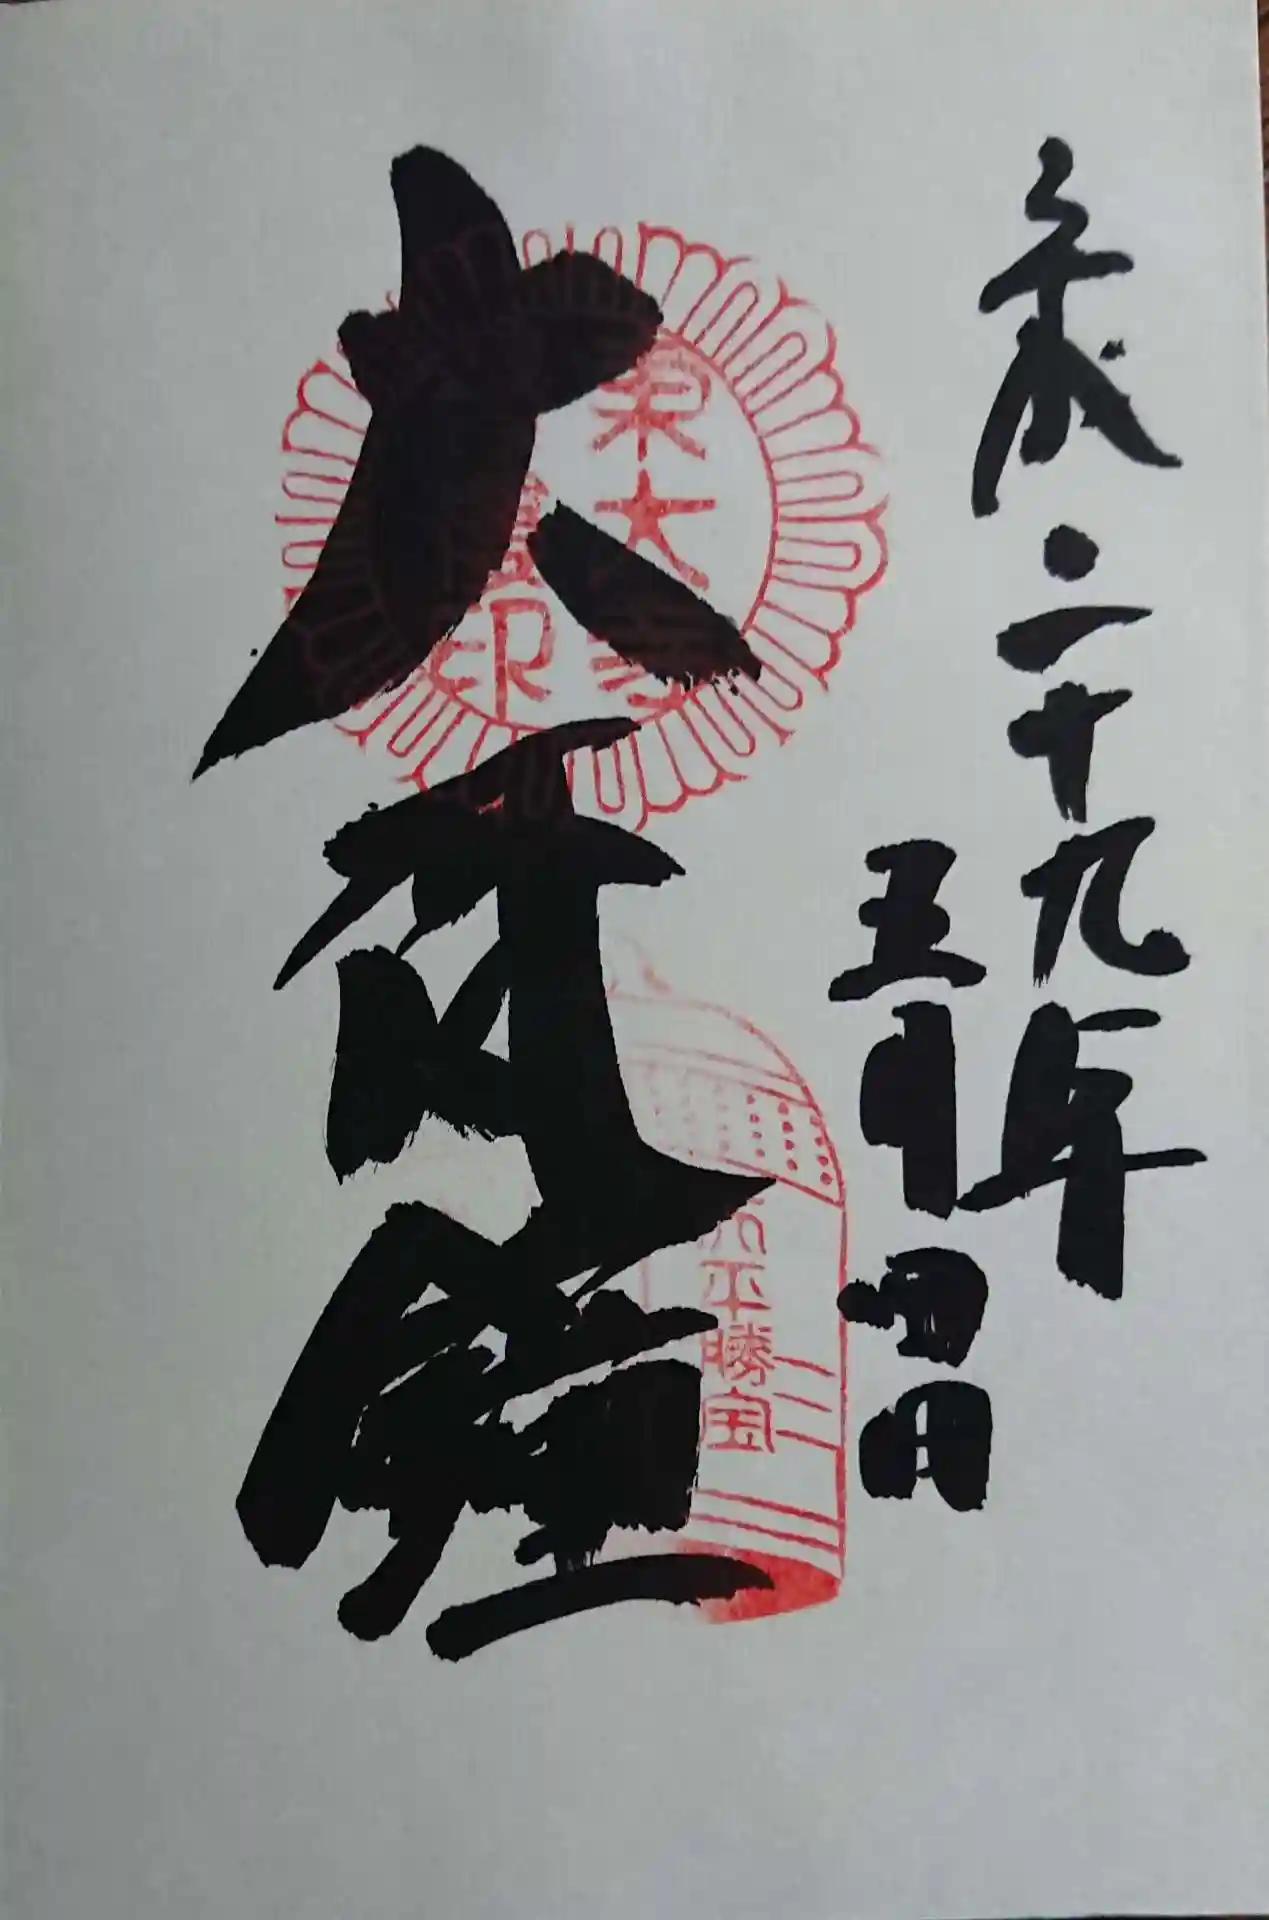 平成二十九年
五月四日
大
鐘
東大寺
印
平勝宝